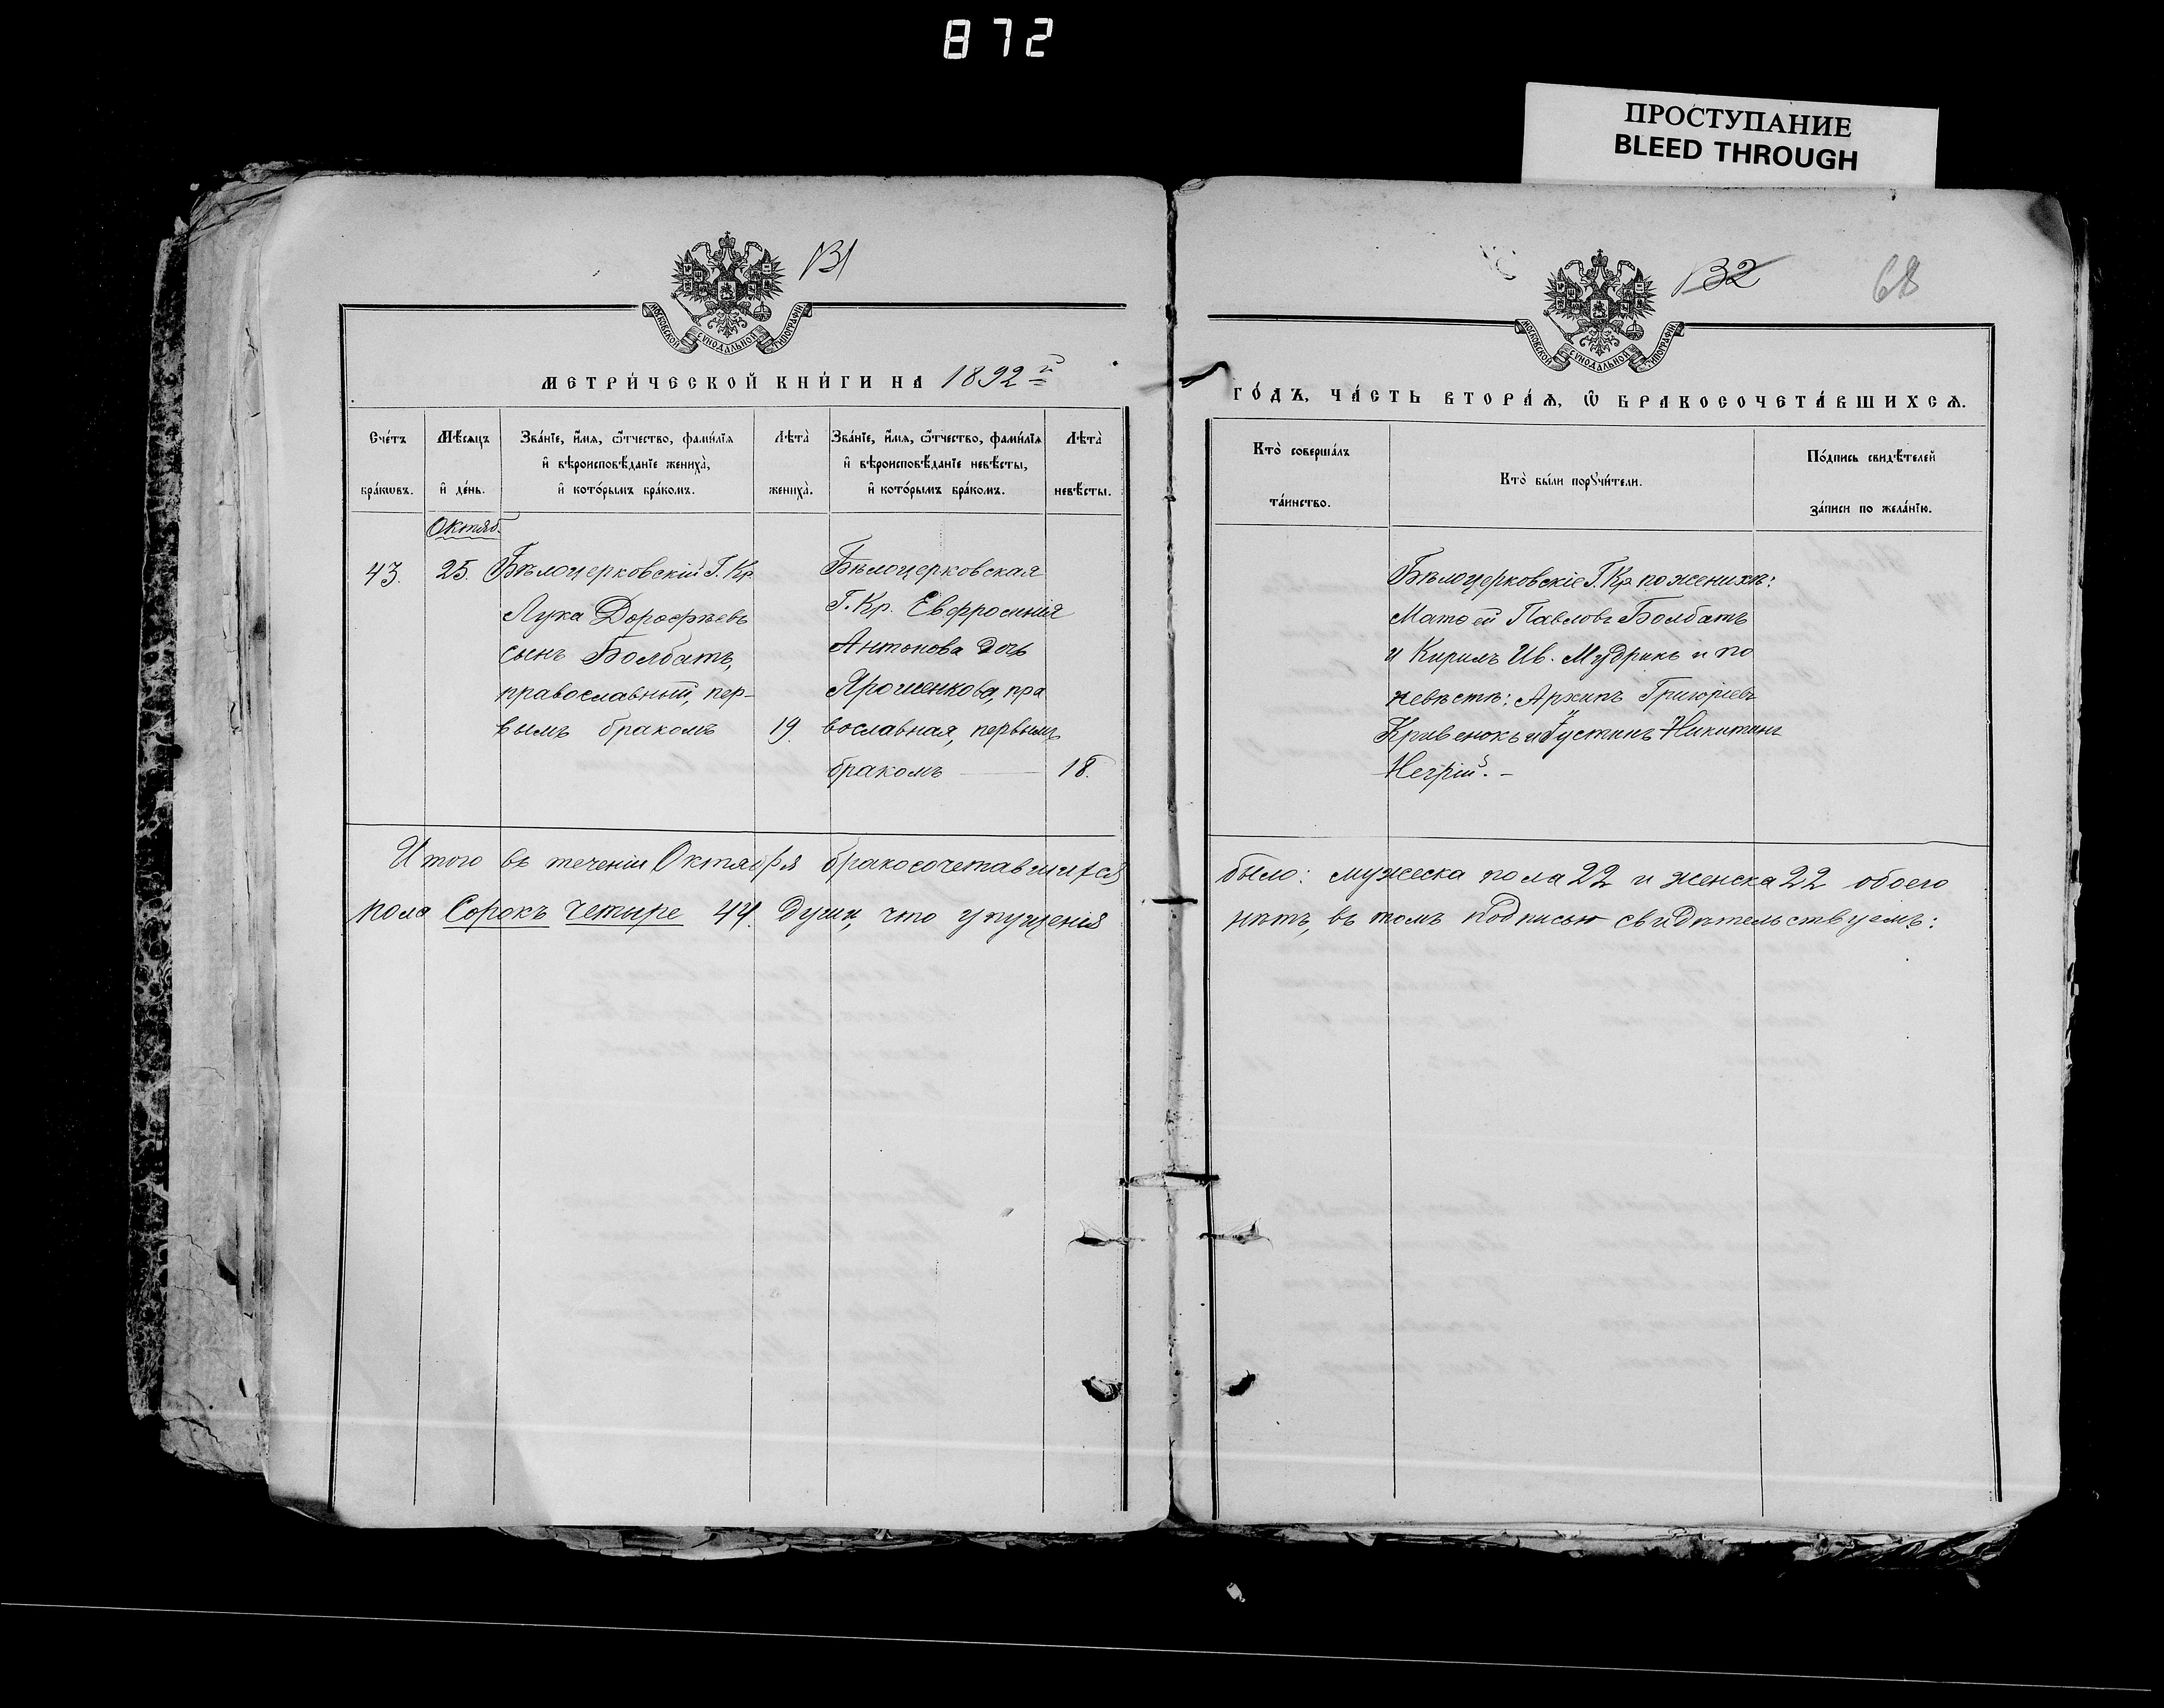 872
ПРОСТУПАНИЕ
BLEED THROUGH
131
МОСКОВСКОЙ СѴНОДАЛЬНОЙ ТИПОГРАФІИ
МЕТРИ́ЧЕСКОЙ КНИ́ГИ НА 1892 й
Сче́тъ бра́кѡвъ.
Мѣ́сяцъ и҆ де́нь.
Зва́нїе, и҆́мѧ, ѻ҆́тчество, фами́лїѧ и҆ вѣроисповѣ́данїе жениха̀, и҆ кото́рымъ бра́комъ.
Лѣта̀ жениха̀.
Зва́нїе, и҆́мѧ, ѻ҆́тчество, фами́лїѧ и҆ вѣроисповѣ́данїе невѣ́сты, и҆ кото́рымъ бра́комъ.
Лѣта̀ невѣ́сты.
Октяб.
43. 25. Бѣлоцерковскій Г. Кр.
Лука Дорофѣевъ
сынъ Болбатъ,
православный, пер-
вымъ бракомъ 19.
Бѣлоцерковская
Г. Кр. Евфросинія
Антонова дочь
Ярошенкова, пра
вославная, первымъ
бракомъ — 18.
Итого въ теченіи Октября бракосочетавшихся
пола Сорокъ четыре 44. души, что упущенія
132
68
МОСКОВСКОЙ СѴНОДАЛЬНОЙ ТИПОГРАФІИ
ГО́ДЪ, ЧА́СТЬ ВТОРА́Ѧ, Ѽ БРАКОСОЧЕТА́ВШИХСѦ.
Кто̀ соверша́лъ та́инство.
Кто̀ бы́ли порꙋчи́тели.
По́дпись свидѣ́телей за́писи по жела́нїю.
Бѣлоцерковскіе Г. Кр. по женихѣ:
Матѳей Павловъ Болбатъ
и Кирилъ Ив. Мудрикъ и по
невѣстѣ: Архипъ Григоріевъ
Кривенокъ и Іустинъ Никитинъ
Негрій. –
было: мужеска пола 22 и женска 22 обоего
нѣтъ, въ томъ подписью свидѣтельствуемъ: